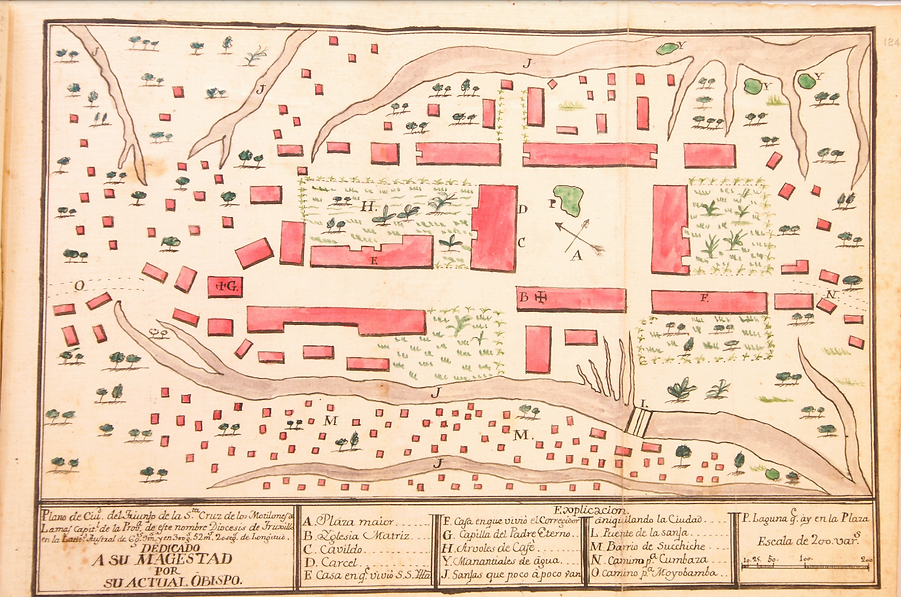 184
J
J
J
Y
Y
Y
H
P
D
C
A
E
G
O
B
F
N
J
L
M
M
J
Plano de Ciu.ᵈ del Triunfo de la S.ᵗᵃ Cruz de los Motilones
Lamas Capit.ˡ de la Prov.ª de este nombre Diocesis de Truxillo
en la Latit.ᵈ Austral de
DEDICADO
A SU MAGESTAD
POR
SU ACTUAL OBISPO.
Explicacion.
A. Plaza maior
B. Yglesia Matriz
C. Cavildo
D. Carcel
E Casa en q.ᵉ vivió S.S. Yllª
F. Casa en que vivió el Corregidor
G Capilla del Padre Eterno
H. Arvoles de Cafè
Y. Manantiales de agua
J. Sanjas que poco à poco van
aniquilando la Ciudad
L Puente de la sanja
M. Barrio de Suchiche
N. Camino p.ª Cumbaza
O. Camino p.ª Moyobamba
P. Laguna q.ᵉ ay en la Plaza
Escala de 200. var.ˢ
10. 25. 50. 100. 200